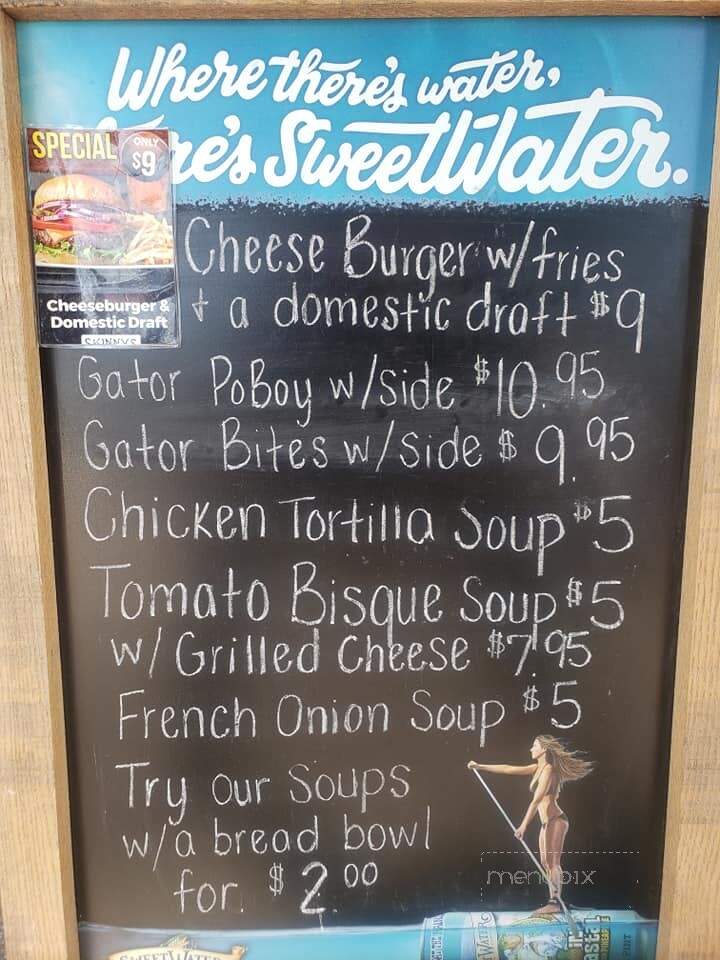 Where there's water,
re's SweetWater.
SPECIAL ONLY $9
Cheeseburger &
Domestic Draft
SKINNYS
Cheese Burger w/fries
+ a domestic draft $9
Gator PoBoy w/side $10.95
Gator Bites w/side $9.95
Chicken Tortilla Soup $5
Tomato Bisque Soup $5
w/ Grilled Cheese $7.95
French Onion Soup $5
Try our Soups
w/a bread bowl
for $2.00
menupix
SWEETWATER